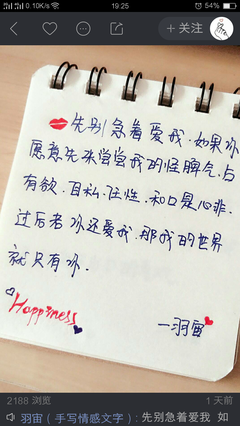 0.10K/s
19:25
54%
+关注
先别急着爱我.如果你
愿意先来尝尝我的怪脾气.占
有欲.自私.任性.和口是心非.
过后若你还爱我.那我的世界
就只有你.
Happiness
一羽宙
2188 浏览
1 天前
羽宙（手写情感文字）: 先别急着爱我 如